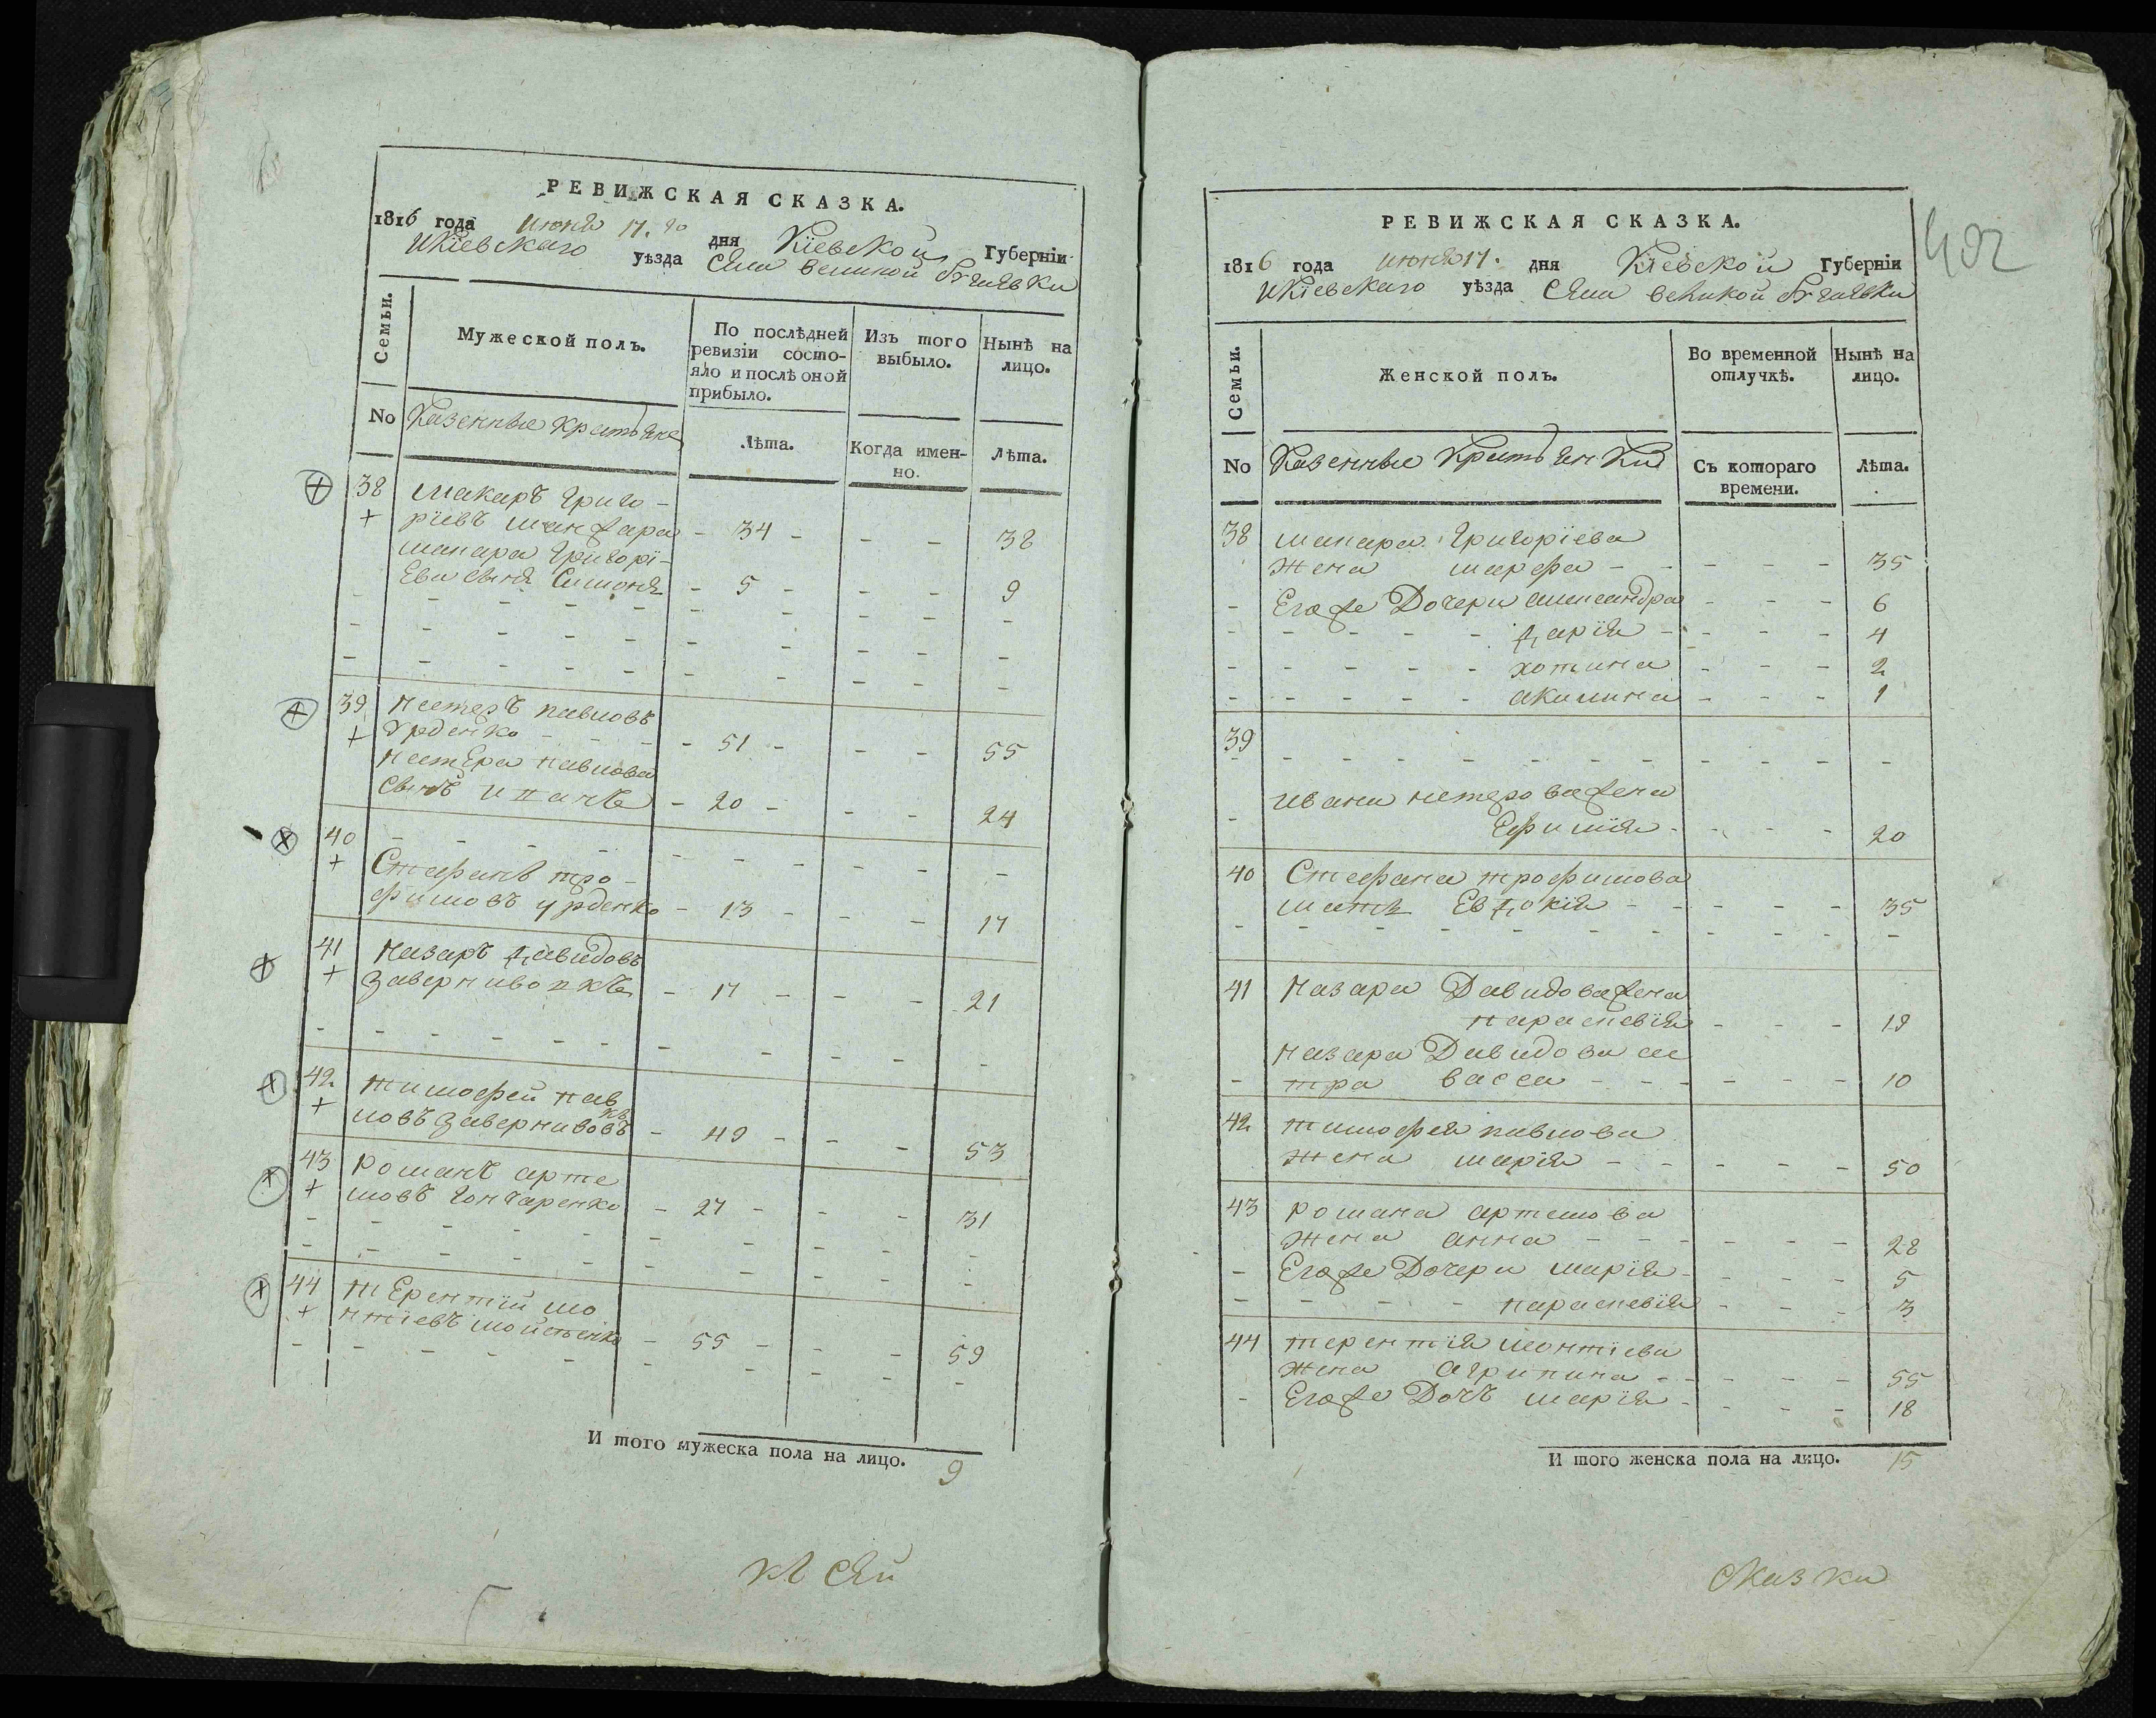 РЕВИЖСКАЯ СКАЗКА.
1816 года июня 17. го дня Кіевской Губерніи
и Кіевскаго уѣзда Села великой
Семьи.
Мужеской полъ.
По послѣдней ревизіи состо-
яло и послѣ оной прибыло.
Изъ того выбыло.
Нынѣ на лицо.
No
Казенные
Лѣта.
Когда имен-
но.
Лѣта.
38 Макаръ Григо-
ріевъ - 34 - - - 38
Макара Григорі-
ева сынъ Симонъ - 5 - - - 9
39 Нестеръ павловъ
Урденко - 51 - - - 55
Нестера павлова
сынъ - 20 - - - 24
40
Стефанъ тро-
фимовъ урденко - 13 - - - 17
41 Назаръ давидовъ
- 17 - - - 21
42 тимофей пав
ловъ - 49 - - - 53
43 романъ арте
мовъ гончаренко - 27 - - - 31
44 терентій ле
онтіевъ - 55 - - - 59
И того мужеска пола на лицо. 9
къ сей
РЕВИЖСКАЯ СКАЗКА.
402
1816 года июня 17. дня Кіевской Губерніи
и Кіевскаго уѣзда Села великой
Семьи.
Женской полъ.
Во временной отлучкѣ.
Нынѣ на лицо.
No
Казенные
Съ котораго времени.
Лѣта.
38 макара Григоріева
жена марфа - - - - - 35
- Егоже Дочери александра - - - 6
дарія - - - - 4
хотина - - - 2
акилина - - - 1
39
ивана нестерова жена
Ефимія - - - - 20
40 Стефана трофимова
мать Евдокія - - - - - 35
41 Назара Давидова жена
параскевія - - - 19
назара Давидова сес
тра васса - - - - - - 10
42 тимофея павлова
жена марія - - - - - 50
43 романа артемова
жена анна - - - - - - 28
- Егоже Дочери марія - - - - 5
параскевія - - - 3
44 терентія леонтіева
жена агрипина - - - - - 55
- Егоже Дочь марія - - - - 18
И того женска пола на лицо. 15
сказки